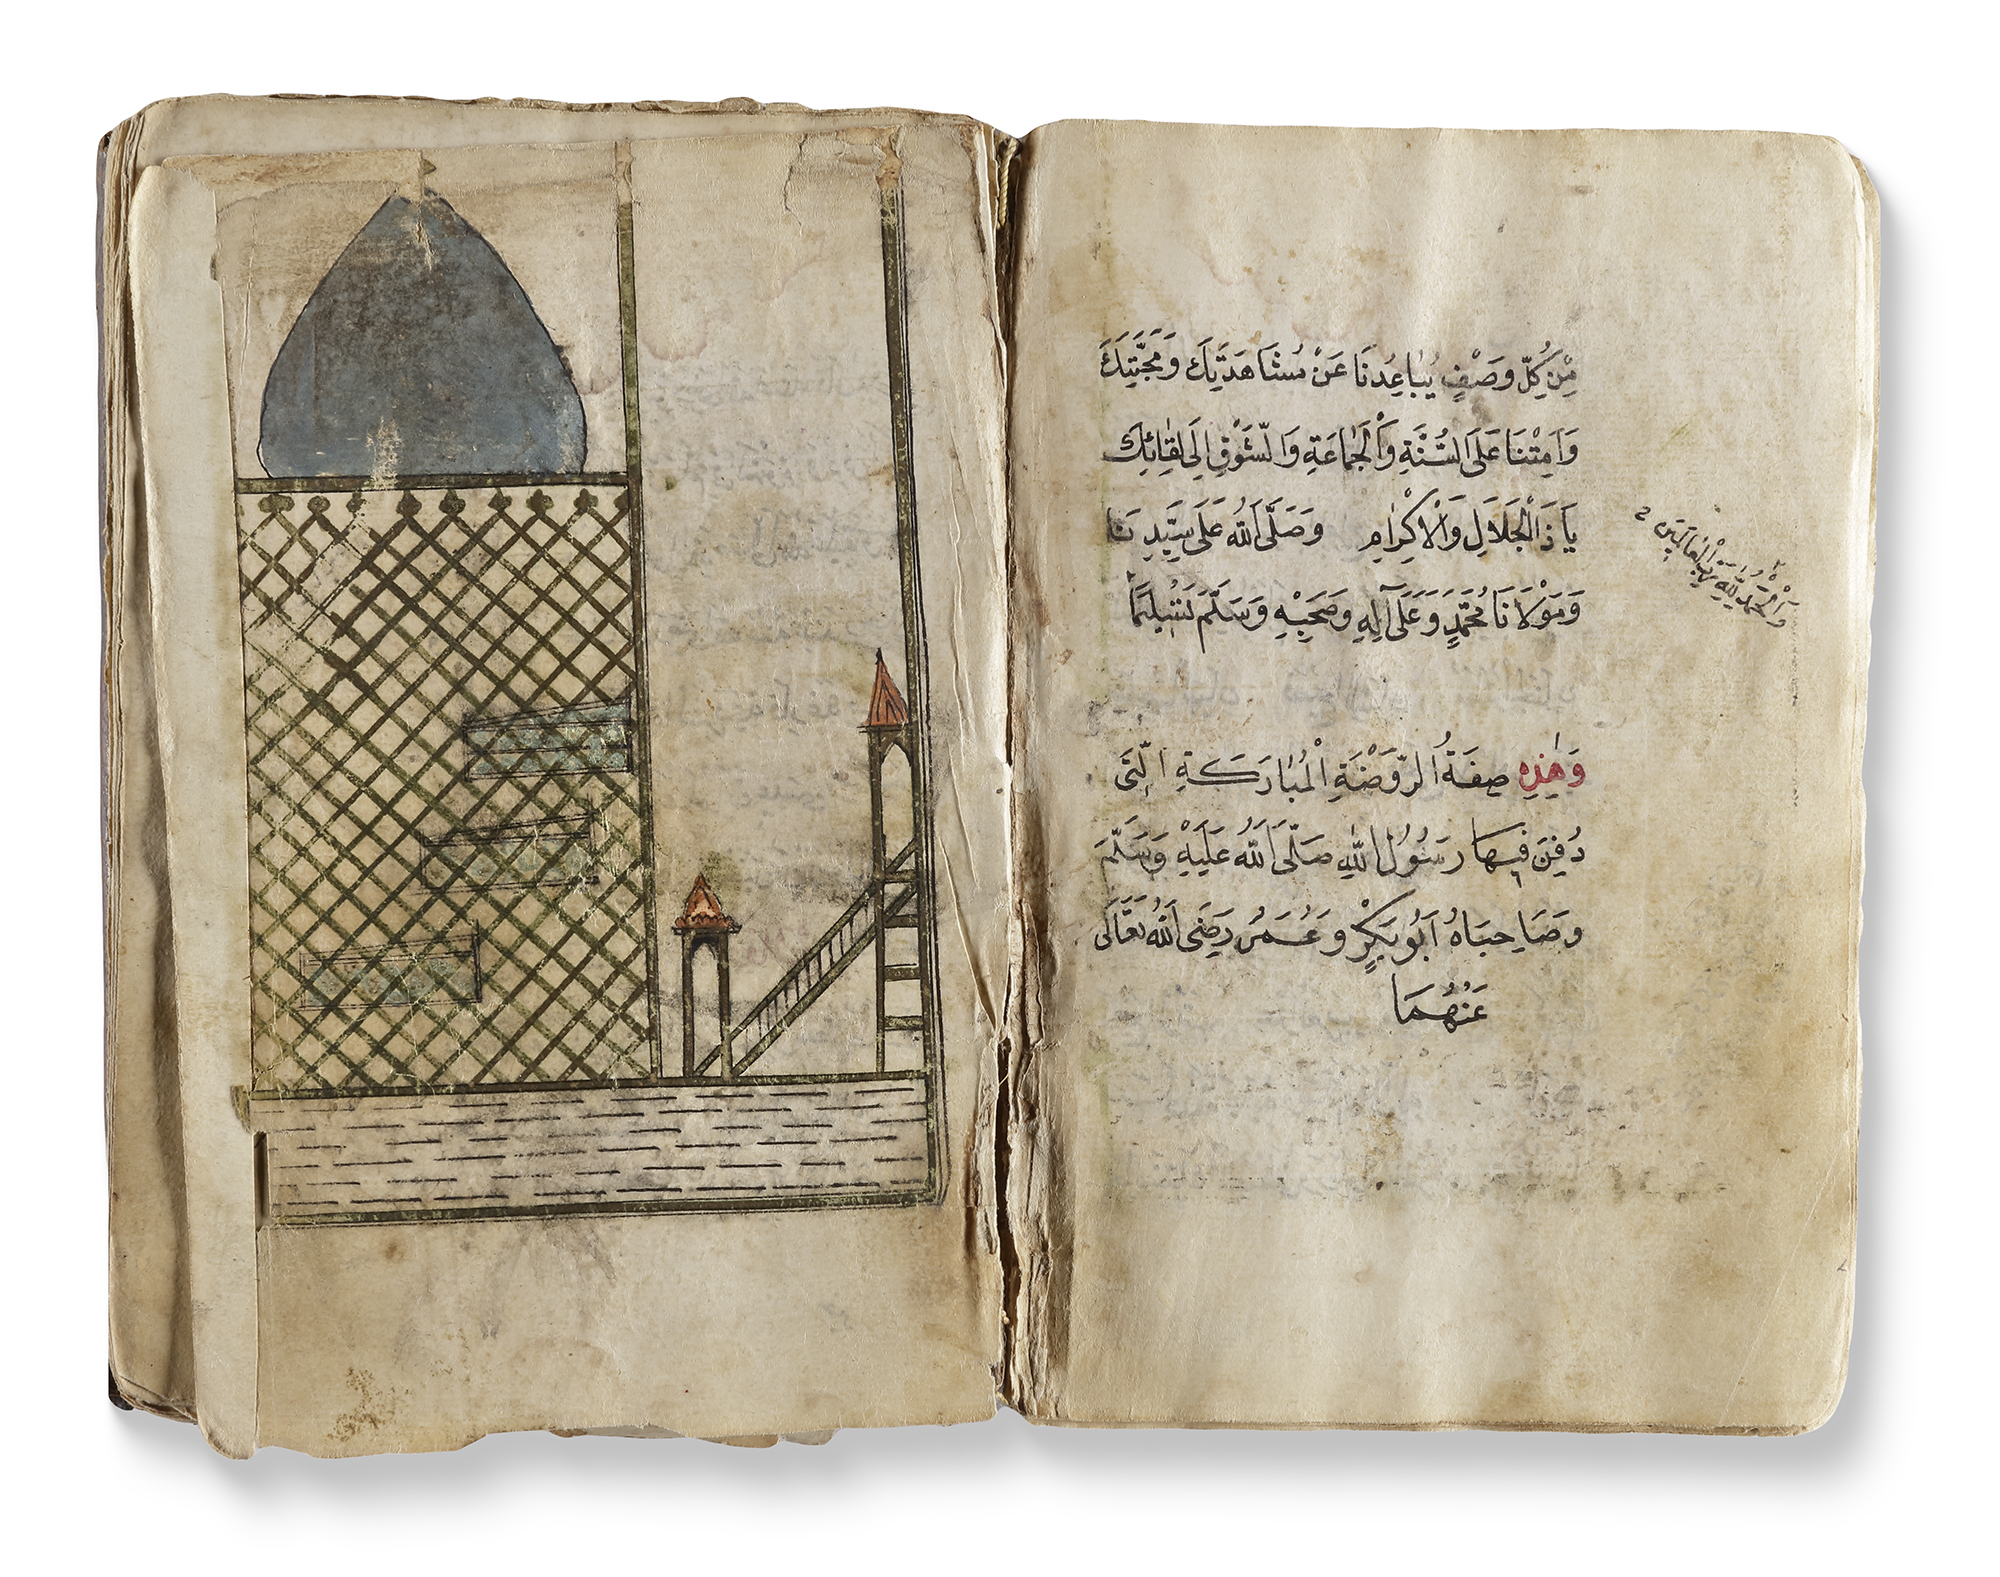 مِنْ كُلِّ وَصْفٍ يُبَاعِدُنَا عَنْ مُشَاهَدَتِكَ وَمَحَبَّتِكَ
وَاَمِتْنَا عَلَى السُّنَّةِ وَالْجَمَاعَةِ وَالشَّوْقِ اِلَى لِقَائِكَ
يَا ذَا الْجَلَالِ وَالْاِكْرَامِ وَصَلَّى اللّٰهُ عَلَى سَيِّدِنَا
وَمَوْلَانَا مُحَمَّدٍ وَعَلَى آلِهِ وَصَحْبِهِ وَسَلَّمَ تَسْلِيمًا
وَالْحَمْدُ لِلّٰهِ رَبِّ الْعَالَمِينَ
وَهٰذِهِ صِفَةُ الرَّوْضَةِ الْمُبَارَكَةِ الَّتِي
دُفِنَ فِيهَا رَسُولُ اللّٰهِ صَلَّى اللّٰهُ عَلَيْهِ وَسَلَّمَ
وَصَاحِبَاهُ اَبُو بَكْرٍ وَعُمَرُ رَضِيَ اللّٰهُ تَعَالَى
عَنْهُمَا